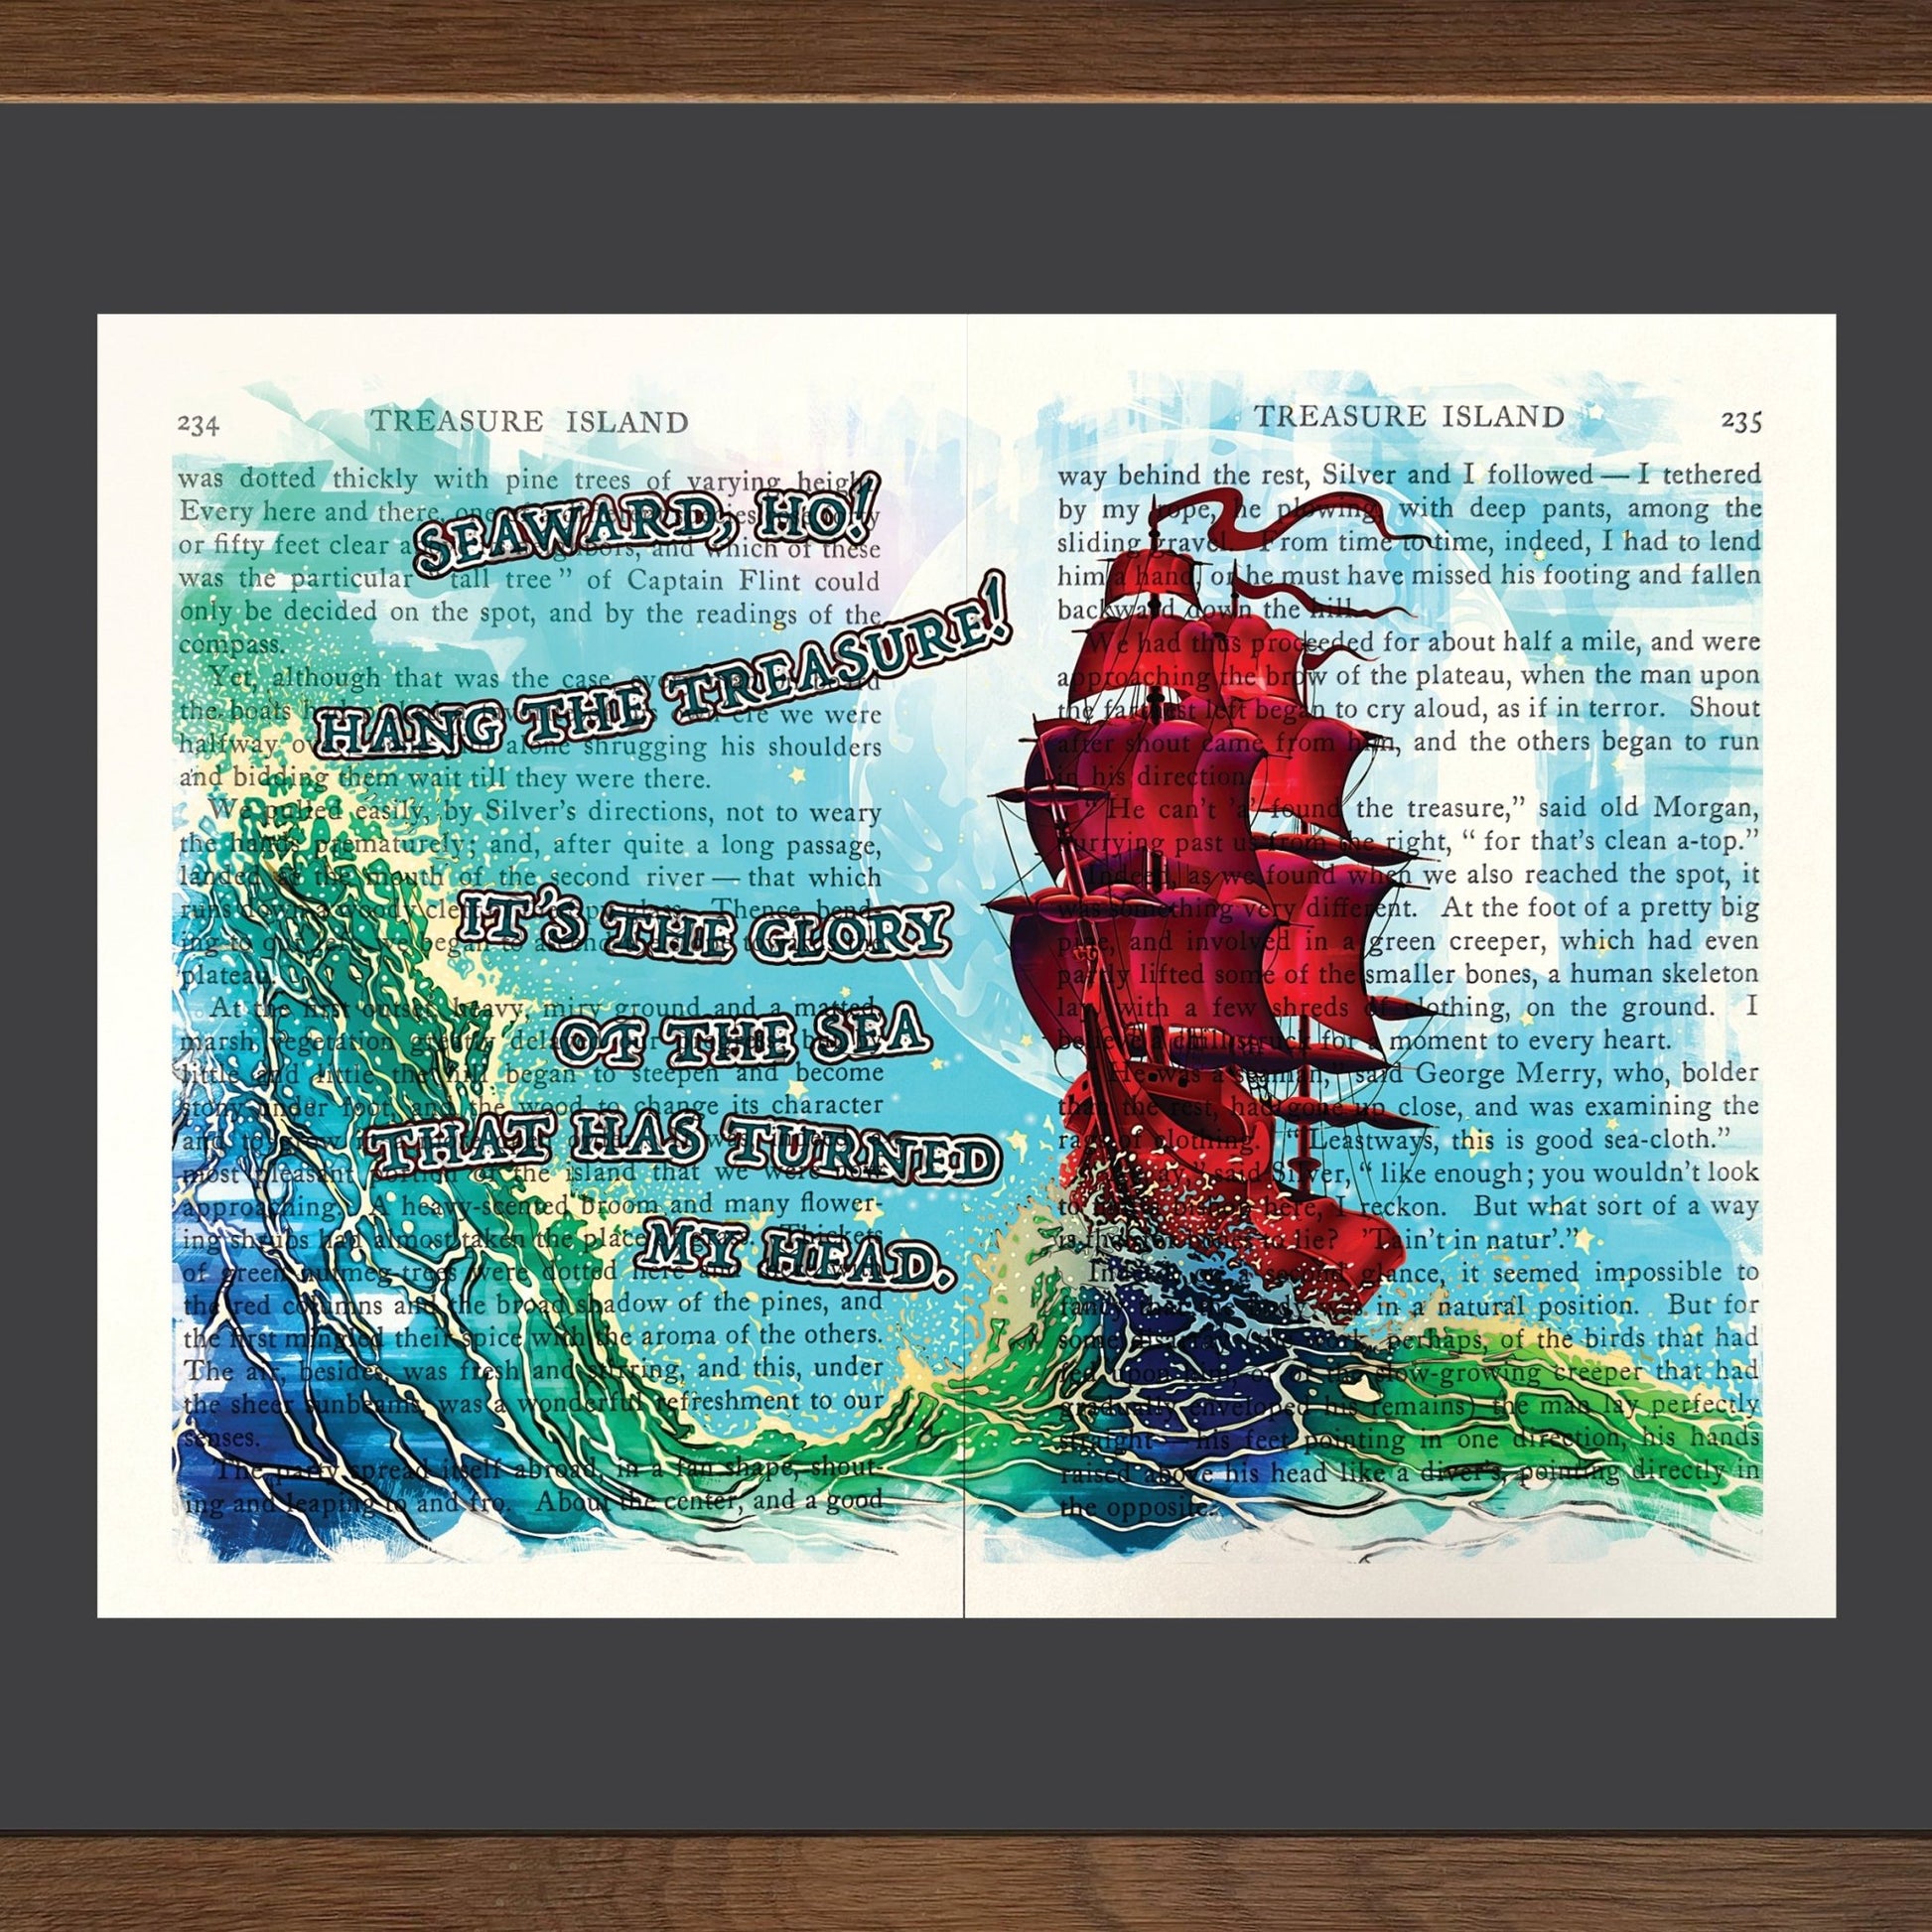 234 TREASURE ISLAND
was dotted thickly with pine trees of varying height.
Every here and there, one
or fifty feet clear and which of these
was the particular “tall tree” of Captain Flint could
only be decided on the spot, and by the readings of the
compass.
Yet, although that was the case,
the boats we were
halfway alone shrugging his shoulders
and bidding them wait till they were there.
We pulled easily, by Silver’s directions, not to weary
the hands prematurely; and, after quite a long passage,
landed at the mouth of the second river—that which
runs down a woody Thence, bend-
ing to our left, we began to ascend the towards the
plateau.
At the first outset, heavy, miry ground and a matted,
marsh vegetation greatly delayed our progress; but
little and little the hill began to steepen and become
stony under foot, and the wood to change its character
and to grow
most pleasant portion of the island that we were now
approaching. A heavy-scented broom and many flower-
ing shrubs had almost taken the place Thickets
of green nutmeg-trees were dotted here and
the red columns and the broad shadow of the pines, and
the first mingled their spice with the aroma of the others.
The air, besides, was fresh and stirring, and this, under
the sheer sunbeams, was a wonderful refreshment to our
senses.
The party spread itself abroad, in a fan shape, shout-
ing and leaping to and fro. About the center, and a good
SEAWARD, HO!
HANG THE TREASURE!
IT’S THE GLORY
OF THE SEA
THAT HAS TURNED
MY HEAD.
TREASURE ISLAND 235
way behind the rest, Silver and I followed—I tethered
by my rope, he plowing, with deep pants, among the
sliding gravel. From time to time, indeed, I had to lend
him a hand, or he must have missed his footing and fallen
backward down the hill.
We had thus proceeded for about half a mile, and were
approaching the brow of the plateau, when the man upon
the farthest left began to cry aloud, as if in terror. Shout
after shout came from him, and the others began to run
in his direction.
“He can’t ’a’ found the treasure,” said old Morgan,
hurrying past us from the right, “for that’s clean a-top.”
Indeed, as we found when we also reached the spot, it
was something very different. At the foot of a pretty big
pine, and involved in a green creeper, which had even
partly lifted some of the smaller bones, a human skeleton
lay, with a few shreds of clothing, on the ground. I
believe a chill struck for a moment to every heart.
“He was a seaman,” said George Merry, who, bolder
than the rest, had gone up close, and was examining the
rags of clothing. “Leastways, this is good sea-cloth.”
said Silver, “like enough; you wouldn’t look
to find a bishop here, I reckon. But what sort of a way
is that for bones to lie? ’Tain’t in natur’.”
Indeed, on a second glance, it seemed impossible to
fancy that the body was in a natural position. But for
some perhaps, of the birds that had
fed upon him, or of the slow-growing creeper that had
gradually enveloped his remains) the man lay perfectly
straight—his feet pointing in one direction, his hands
raised above his head like a diver’s, pointing directly in
the opposite.